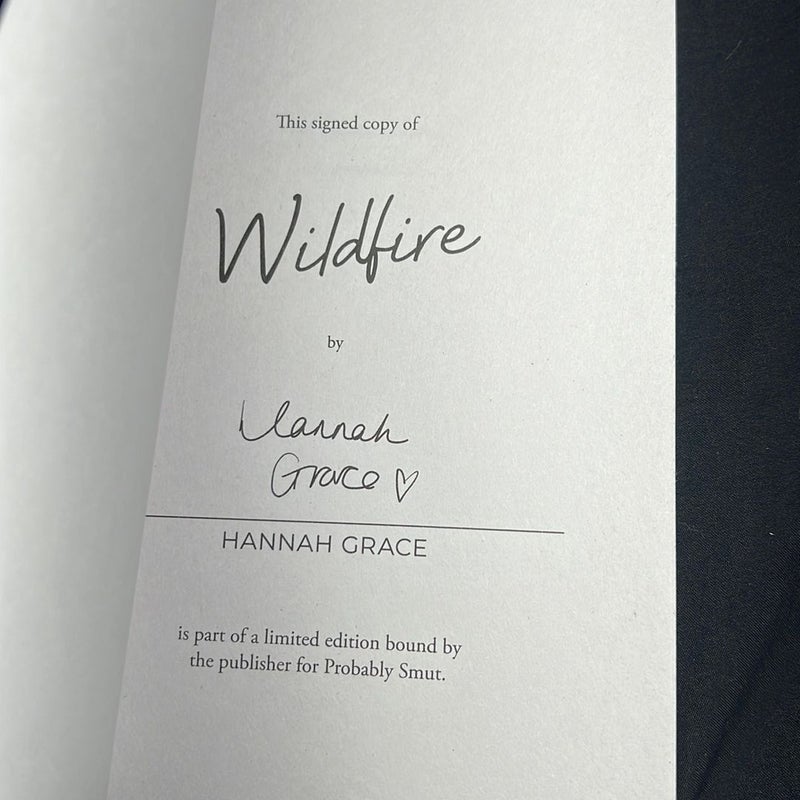 This signed copy of
Wildfire
by
Hannah
Grace ♡
HANNAH GRACE
is part of a limited edition bound by
the publisher for Probably Smut.